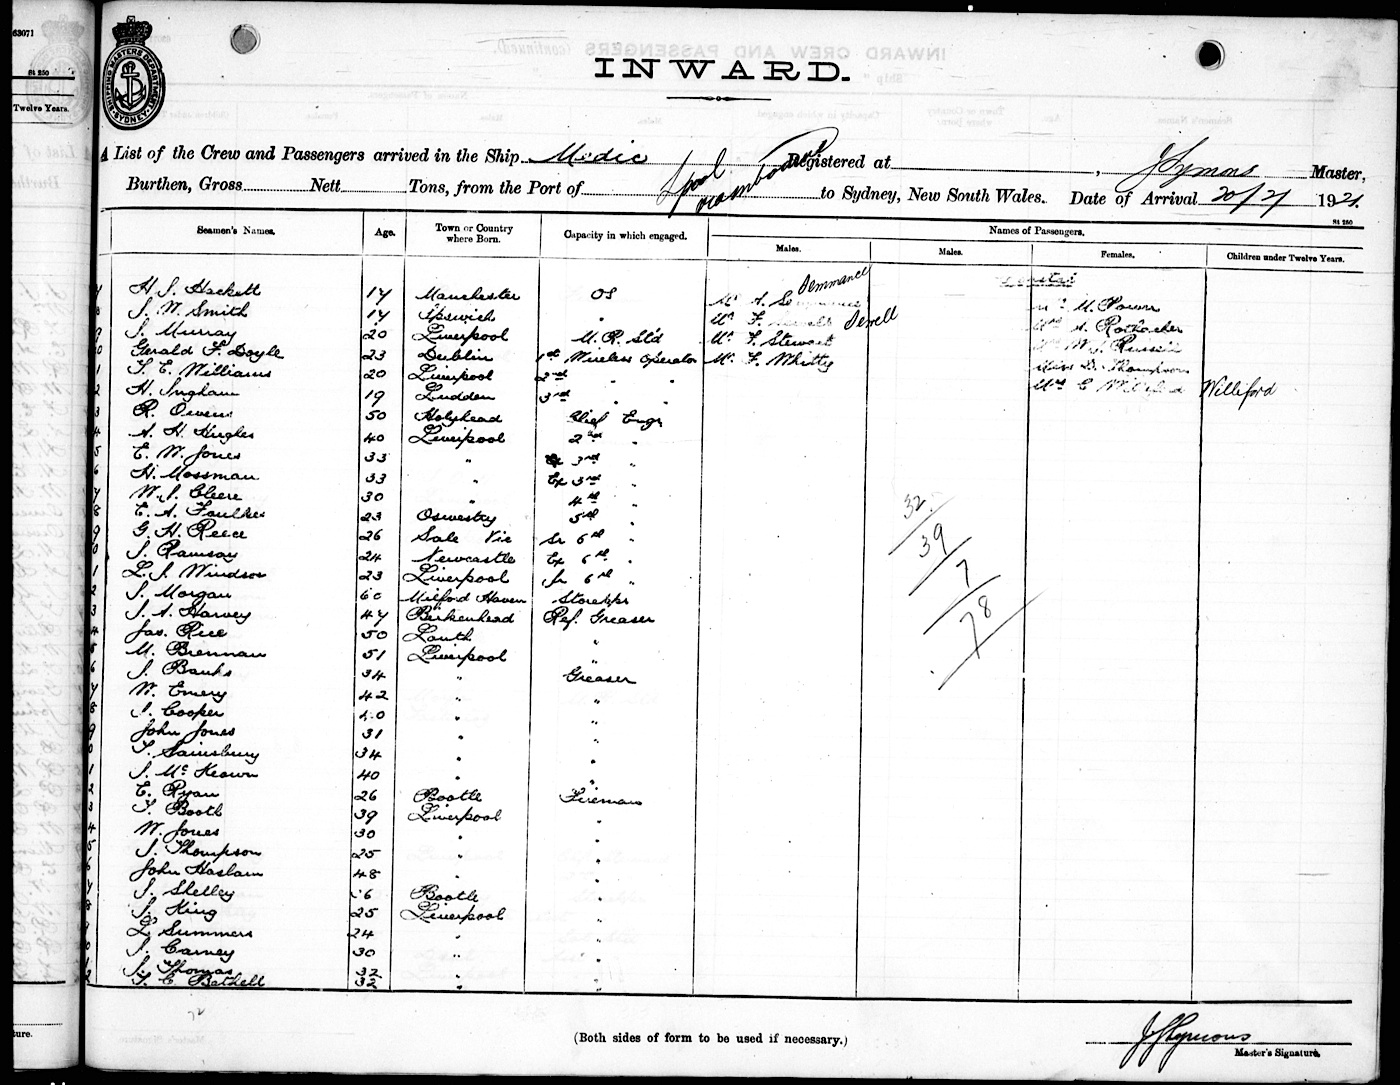 63071
84 250
Twelve Years.
SHIPPING MASTERS DEPARTMENT
SYDNEY
INWARD.
A List of the Crew and Passengers arrived in the Ship Medic Registered at , J Symons Master,
Burthen, Gross Nett Tons, from the Port of L'pool to Sydney, New South Wales. Date of Arrival 20/2/ 1921.
84 250
Seamen's Names. Age. Town or Country where Born. Capacity in which engaged. Names of Passengers.
Males. Males. Females. Children under Twelve Years.
H. J. Hackett 17 Manchester OS Mr A. Demmance Mrs M. Power
J. W. Smith 17 Ipswich " Mr F. Jewell Mrs A. Rothacker
J. Murray 20 Liverpool M. R. Std Mr F. Stewart
Gerald F. Doyle 23 Dublin 1st Wireless Operator Mr F. Whitty Miss D. Thompson
T. E. Williams 20 Liverpool 2nd " " Mrs C Williford
H. Ingham 19 Ludden 3rd " "
R. Owens 50 Holyhead Chief Engr
A. H. Hughes 40 Liverpool 2nd "
E. W. Jones 33 " 3rd "
H. Mossman 33 " Ex 3rd "
W. J. Cleere 30 " 4th "
E. A. Faulkes 23 Oswestry 5th "
G. H. Reece 26 Sale Vic Sr 6th "
J. Ramsay 24 Newcastle Ex 6th "
L. J. Windsor 23 Liverpool Jr 6th "
J. Morgan 60 Milford Haven Storekpr
J. A. Harvey 47 Birkenhead Ref. Greaser
Jas. Rice 50 Louth "
M. Brennan 51 Liverpool "
J. Banks 34 " Greaser
W. Emery 42 " "
J. Cooper 40 " "
John Jones 31 " "
T. Sainsbury 34 " "
J. McKeown 40 " "
E. Ryan 26 Bootle Fireman
T. Booth 39 Liverpool "
W. Jones 30 " "
J. Thompson 25 " "
John Haslam 48 " "
J. Shelley 6 Bootle "
J. King 25 Liverpool "
L. Summers 24 " "
J. Carney 30 " "
J. Thomas 32 " "
T. C. Bathell 32 " "
32
39
7
78
72
(Both sides of form to be used if necessary.)
J Symons
Master's Signature.